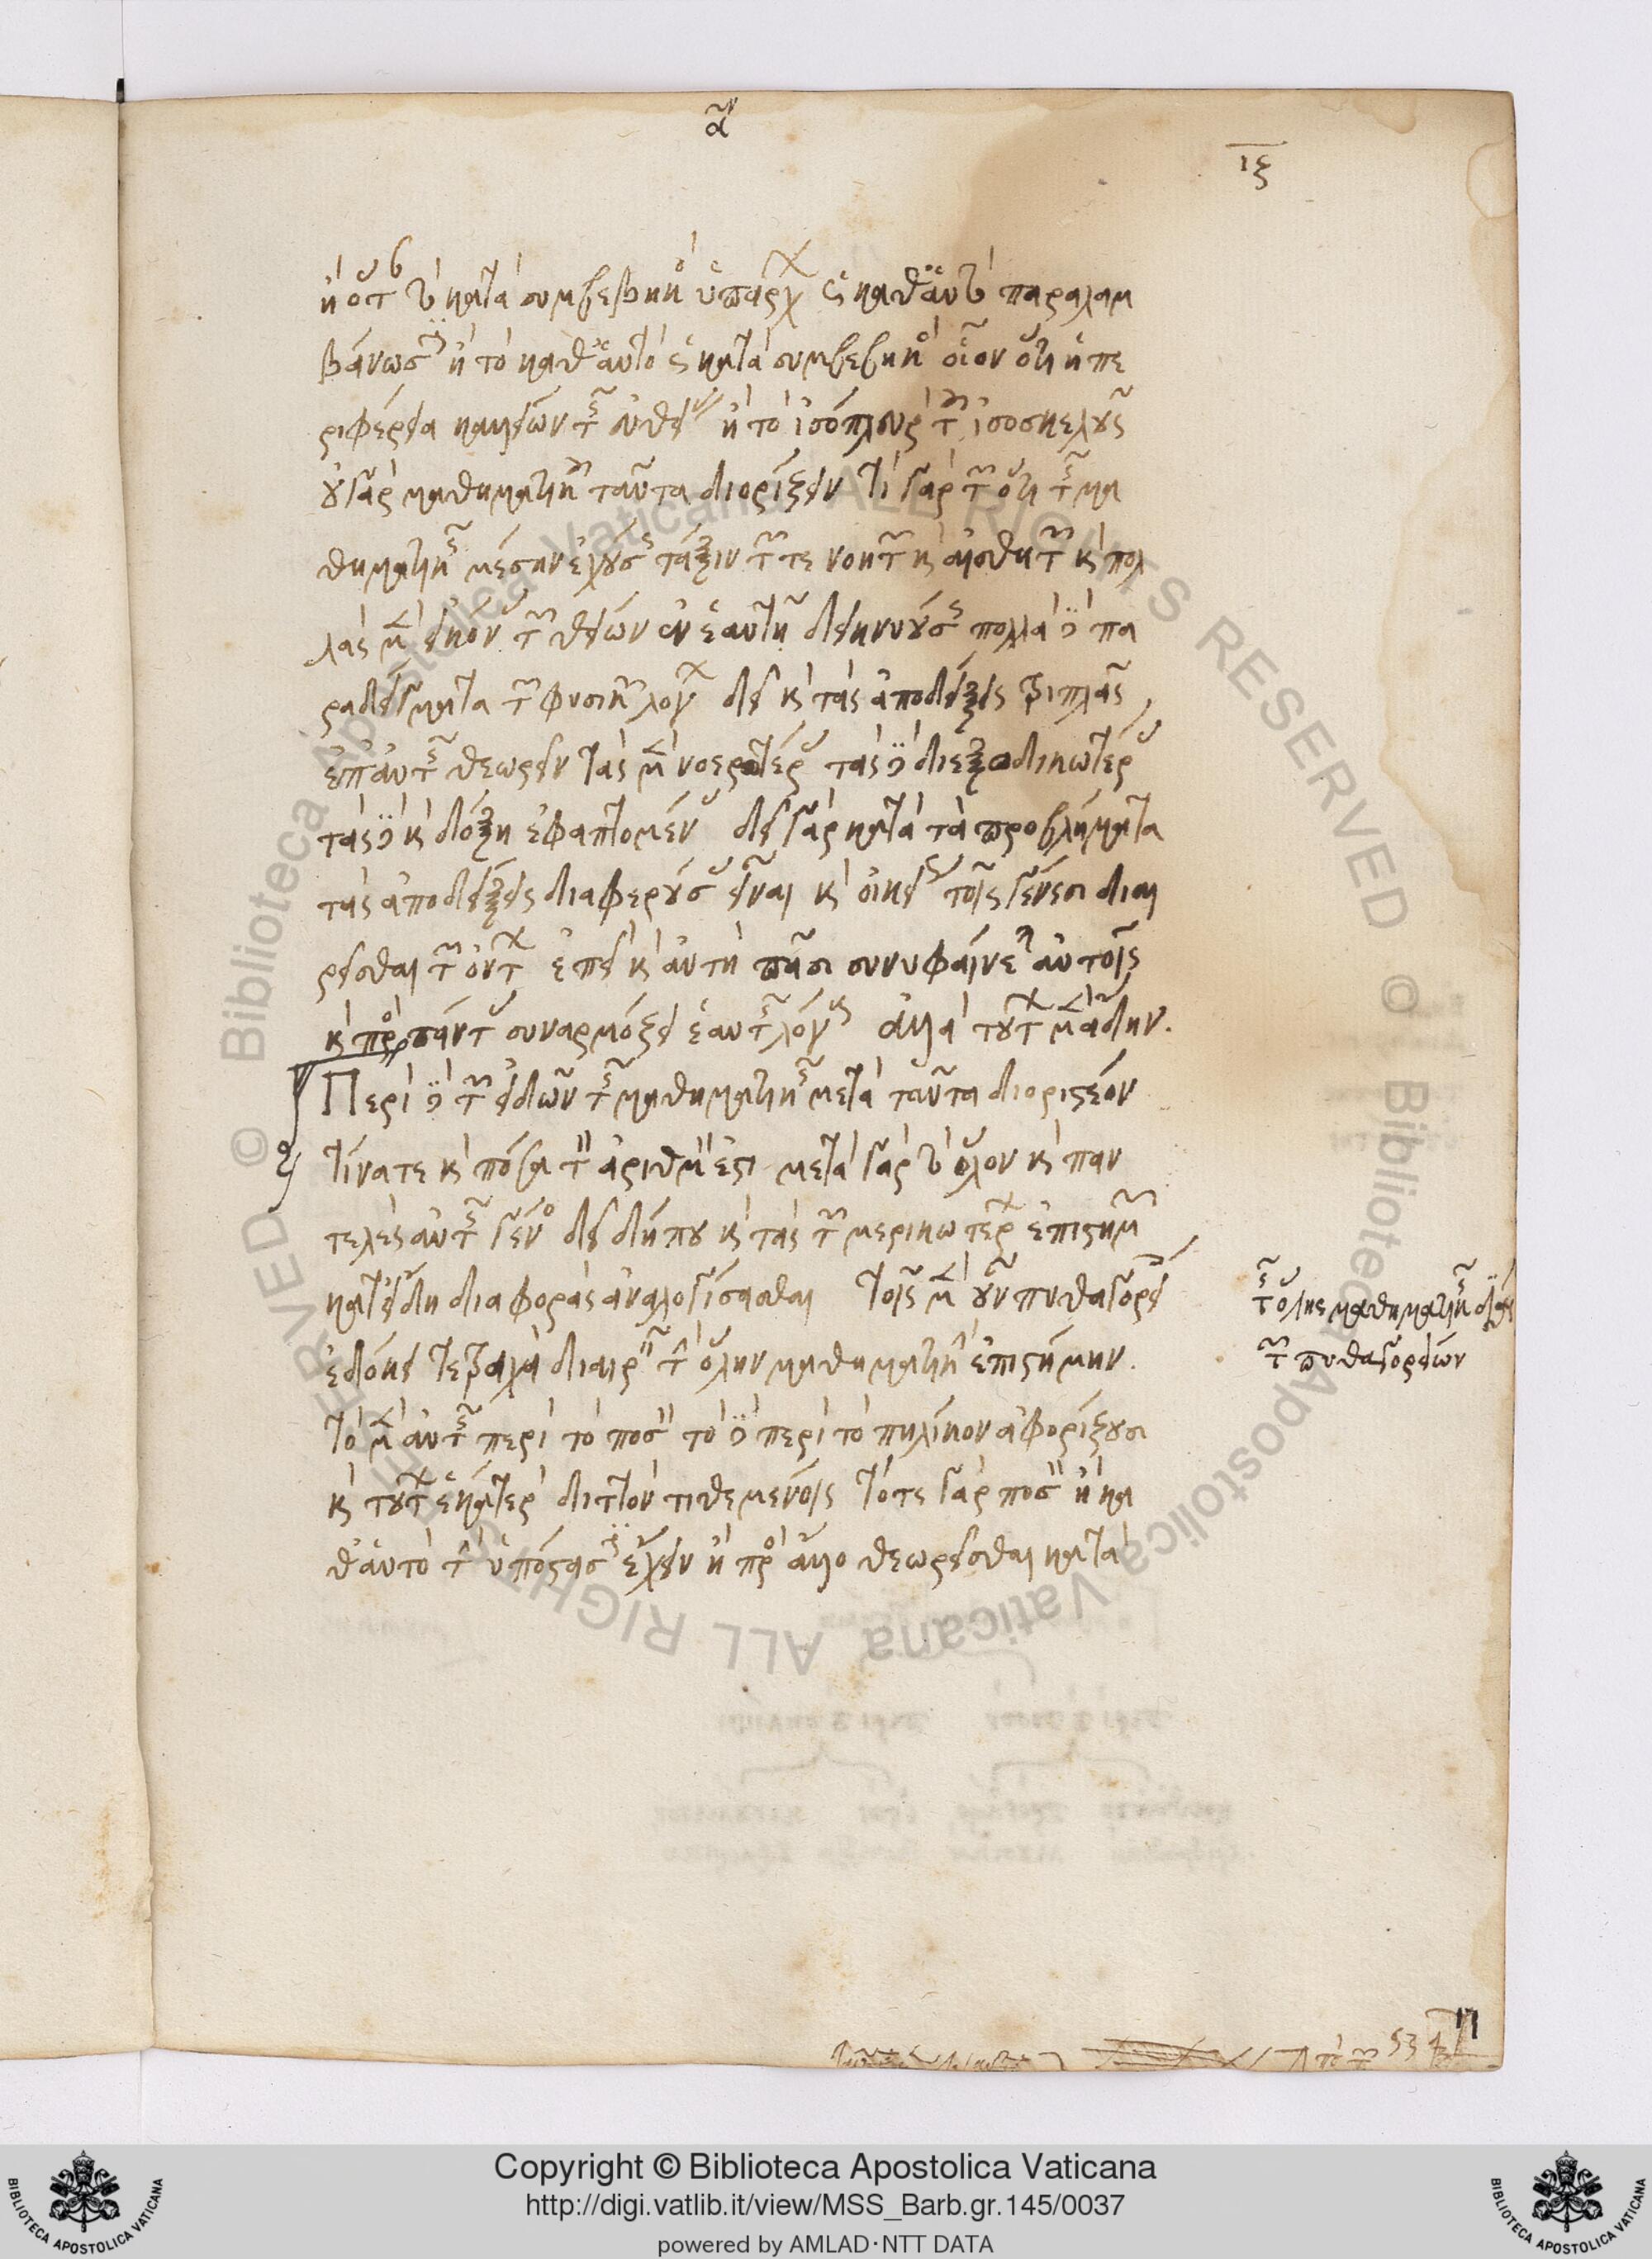 α
ιξ
ἢ ὅτε τὸ κατὰ συμβεβηκὸς ὑπάρχον ὡς καθ' αὑτὸ παραλαμ
βάνωσιν ἢ τὸ καθ' αὑτὸ ὡς κατὰ συμβεβηκός οἷον ὅτι ἡ πε
ριφέρεια καλλίων τῆς εὐθείας ἢ τὸ ἰσόπλευρον τοῦ ἰσοσκελοῦς
οὐ γὰρ μαθηματικοῦ ταῦτα διορίζειν
θηματικῆς μέσην ἐχούσης τάξιν τῶν τε νοητῶν καὶ αἰσθητῶν καὶ πολ
λὰς μὲν εἰκόνας τῶν θείων ἐν ἑαυτῇ δεικνυούσης πολλὰ δὲ πα
ραδείγματα τῶν φυσικῶν λόγων δεῖ καὶ τὰς ἀποδείξεις τριπλᾶς
ἐπ' αὐτῆς θεωρεῖν τὰς μὲν νοερωτέρας τὰς δὲ διεξοδικωτέρας
τὰς δὲ καὶ δόξῃ ἐφαπτομένας δεῖ γὰρ κατὰ τὰ προβλήματα
τὰς ἀποδείξεις διαφερούσας εἶναι καὶ οἰκείως τοῖς γένεσι διαι
ρεῖσθαι τῶν ὄντων ἐπεὶ καὶ αὐτὴ πᾶσι συνυφαίνεται αὐτοῖς
καὶ πρὸς πάντας συναρμόζει ἑαυτῆς λόγους ἀλλὰ τούτων μὲν ἅδην.
Περὶ δὲ τῶν εἰδῶν τῆς μαθηματικῆς μετὰ ταῦτα διοριστέον
τίνα τε καὶ πόσα τὸν ἀριθμόν ἐστι μετὰ γὰρ τὸ ὅλον καὶ παν
τελὲς αὐτῆς γένος δεῖ δήπου καὶ τὰς τῶν μερικωτέρων ἐπιστημῶν
κατ' εἴδη διαφορὰς ἀναλογίσασθαι τοῖς μὲν οὖν πυθαγορείοις
ἐδόκει τέτραχα διαιρεῖν τὴν ὅλην μαθηματικὴν ἐπιστήμην.
τὸ μὲν αὐτῆς περὶ τὸ ποσὸν τὸ δὲ περὶ τὸ πηλίκον ἀφορίζουσι
καὶ τούτων ἑκάτερον διττὸν τιθεμένοις τό τε γὰρ ποσὸν ἢ κα
θ' αὑτὸ τὴν ὑπόστασιν ἔχειν ἢ πρὸς ἄλλο θεωρεῖσθαι κατὰ
τῆς ὅλης μαθηματικῆς
τῶν πυθαγορείων
Copyright © Biblioteca Apostolica Vaticana
http://digi.vatlib.it/view/MSS_Barb.gr.145/0037
powered by AMLAD·NTT DATA